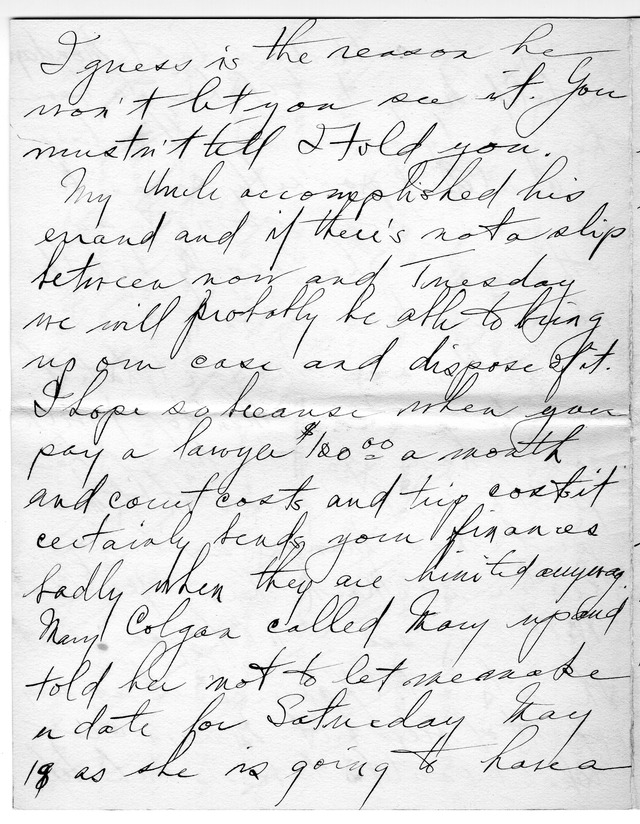 I guess is the reason he
won't let you see it. You
mustn't tell I told you.
My Uncle accomplished his
errand and if there's not a slip
between now and Tuesday
we will probably be able to bring
up our case and dispose of it.
I hope so because when you
pay a lawyer $100 00 a month
and court costs and trip cost it
certainly bends your finances
badly when they are limited anyway.
Mary Colgan called Mary up and
told her not to let me make
a date for Saturday May
18 as she is going to have a